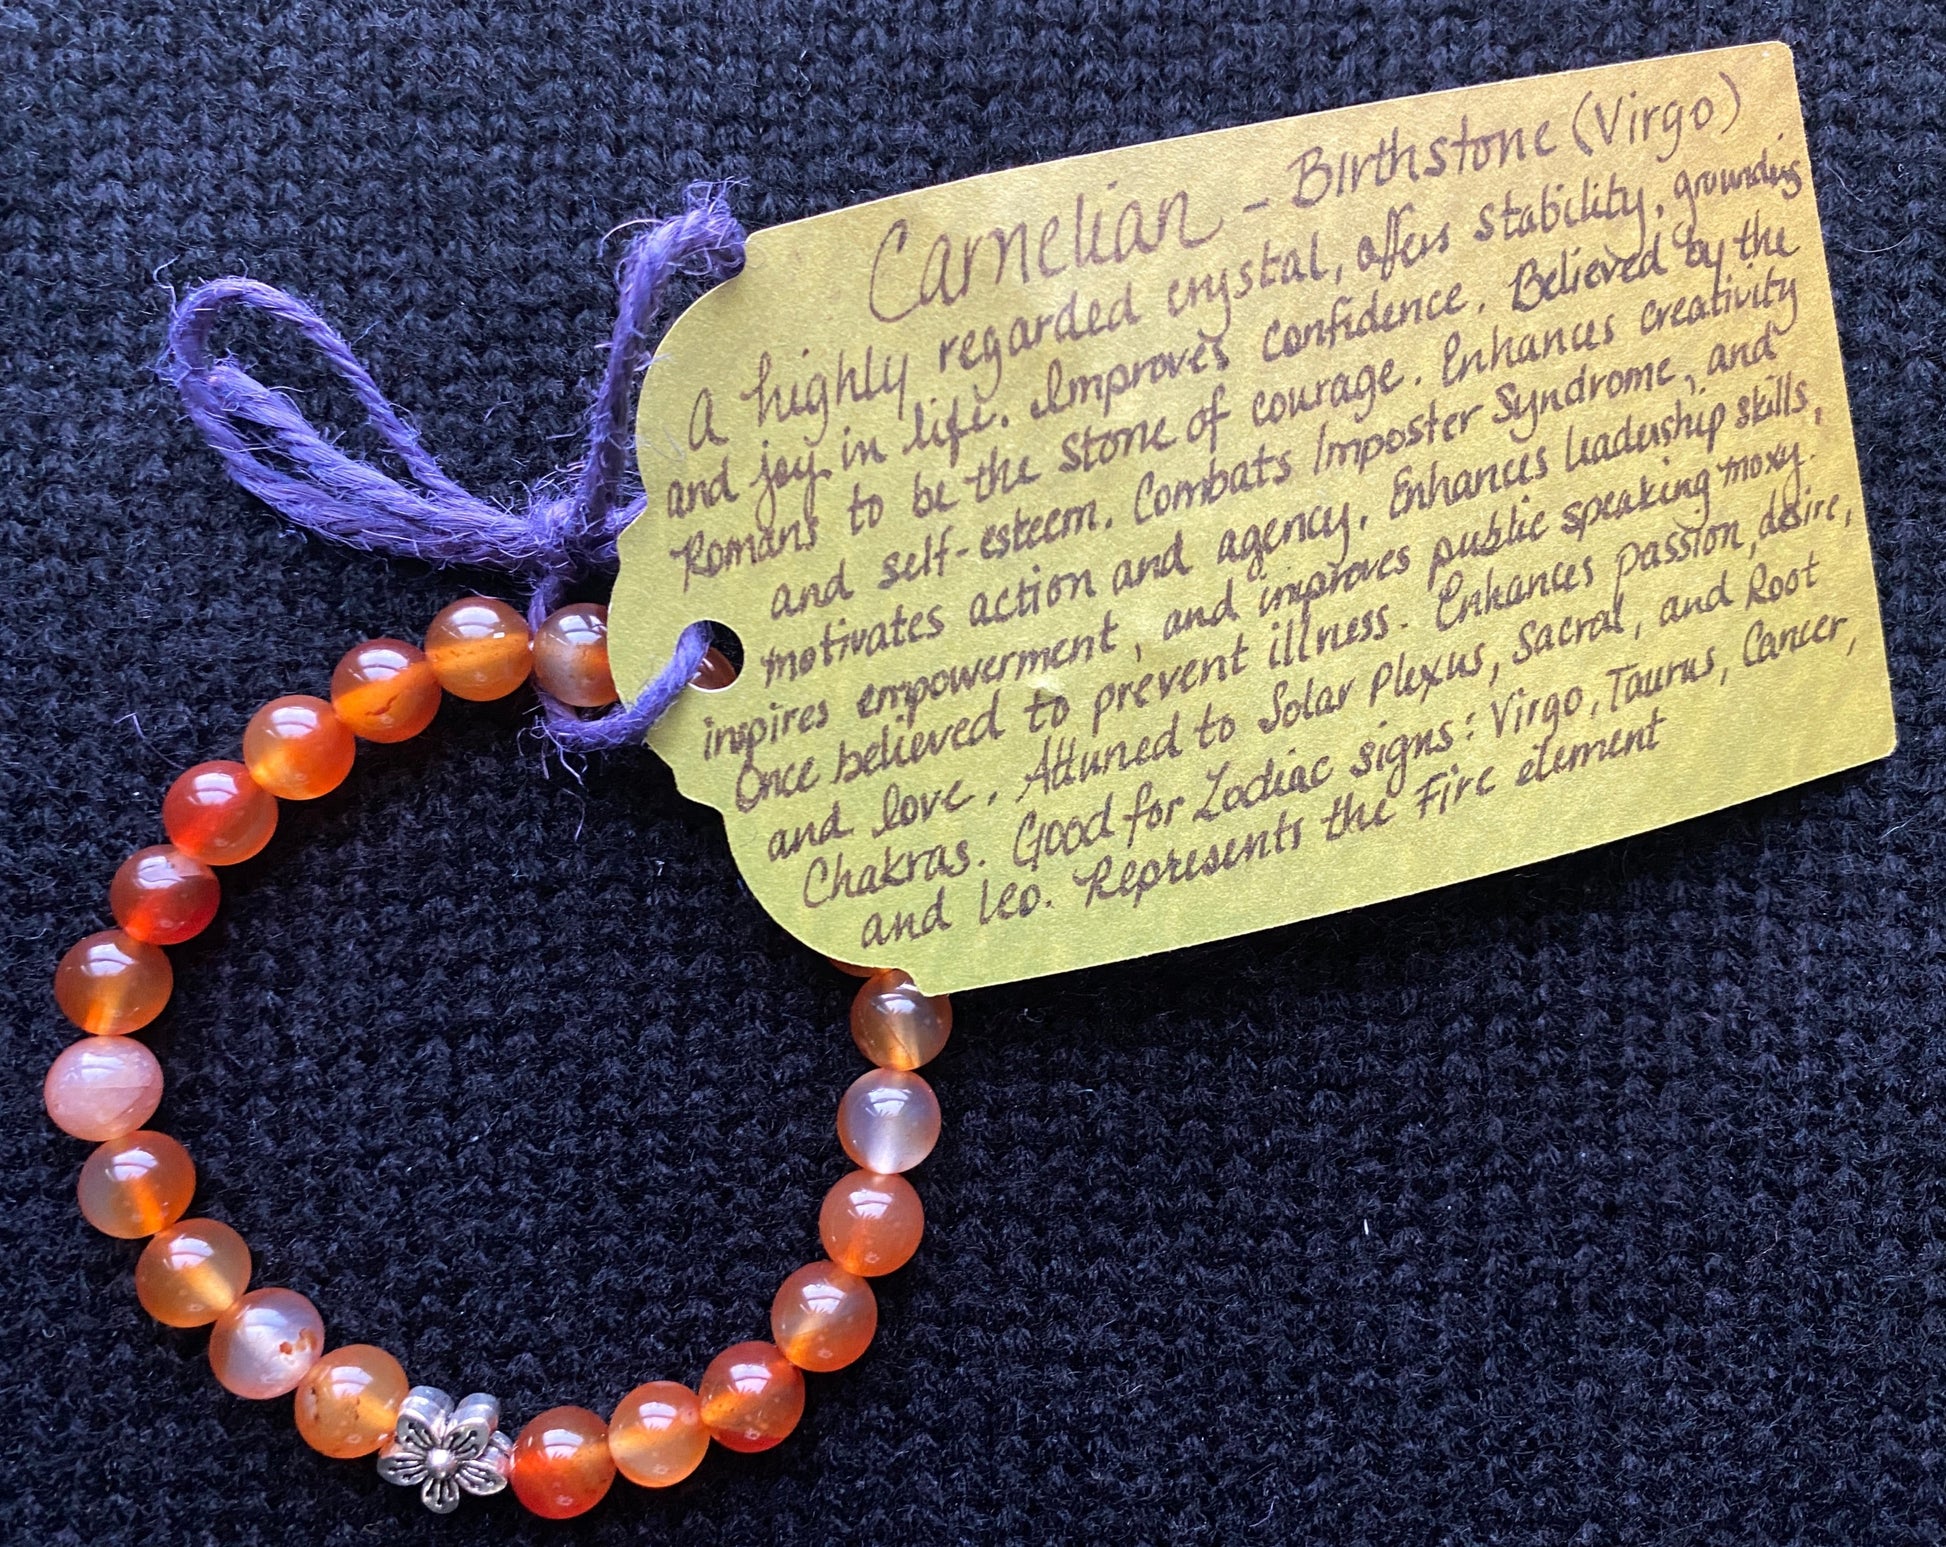 Carnelian - Birthstone (Virgo)
A highly regarded crystal, offers stability, grounding
and joy in life. Improves confidence. Believed by the
Romans to be the Stone of courage. Enhances creativity
and self-esteem. Combats Imposter Syndrome, and
motivates action and agency. Enhances leadership skills,
inspires empowerment, and improves public speaking moxy.
Once believed to prevent illness. Enhances passion, desire,
and love. Attuned to Solar Plexus, Sacral, and Root
Chakras. Good for Zodiac signs: Virgo, Taurus, Cancer,
and Leo. Represents the Fire element